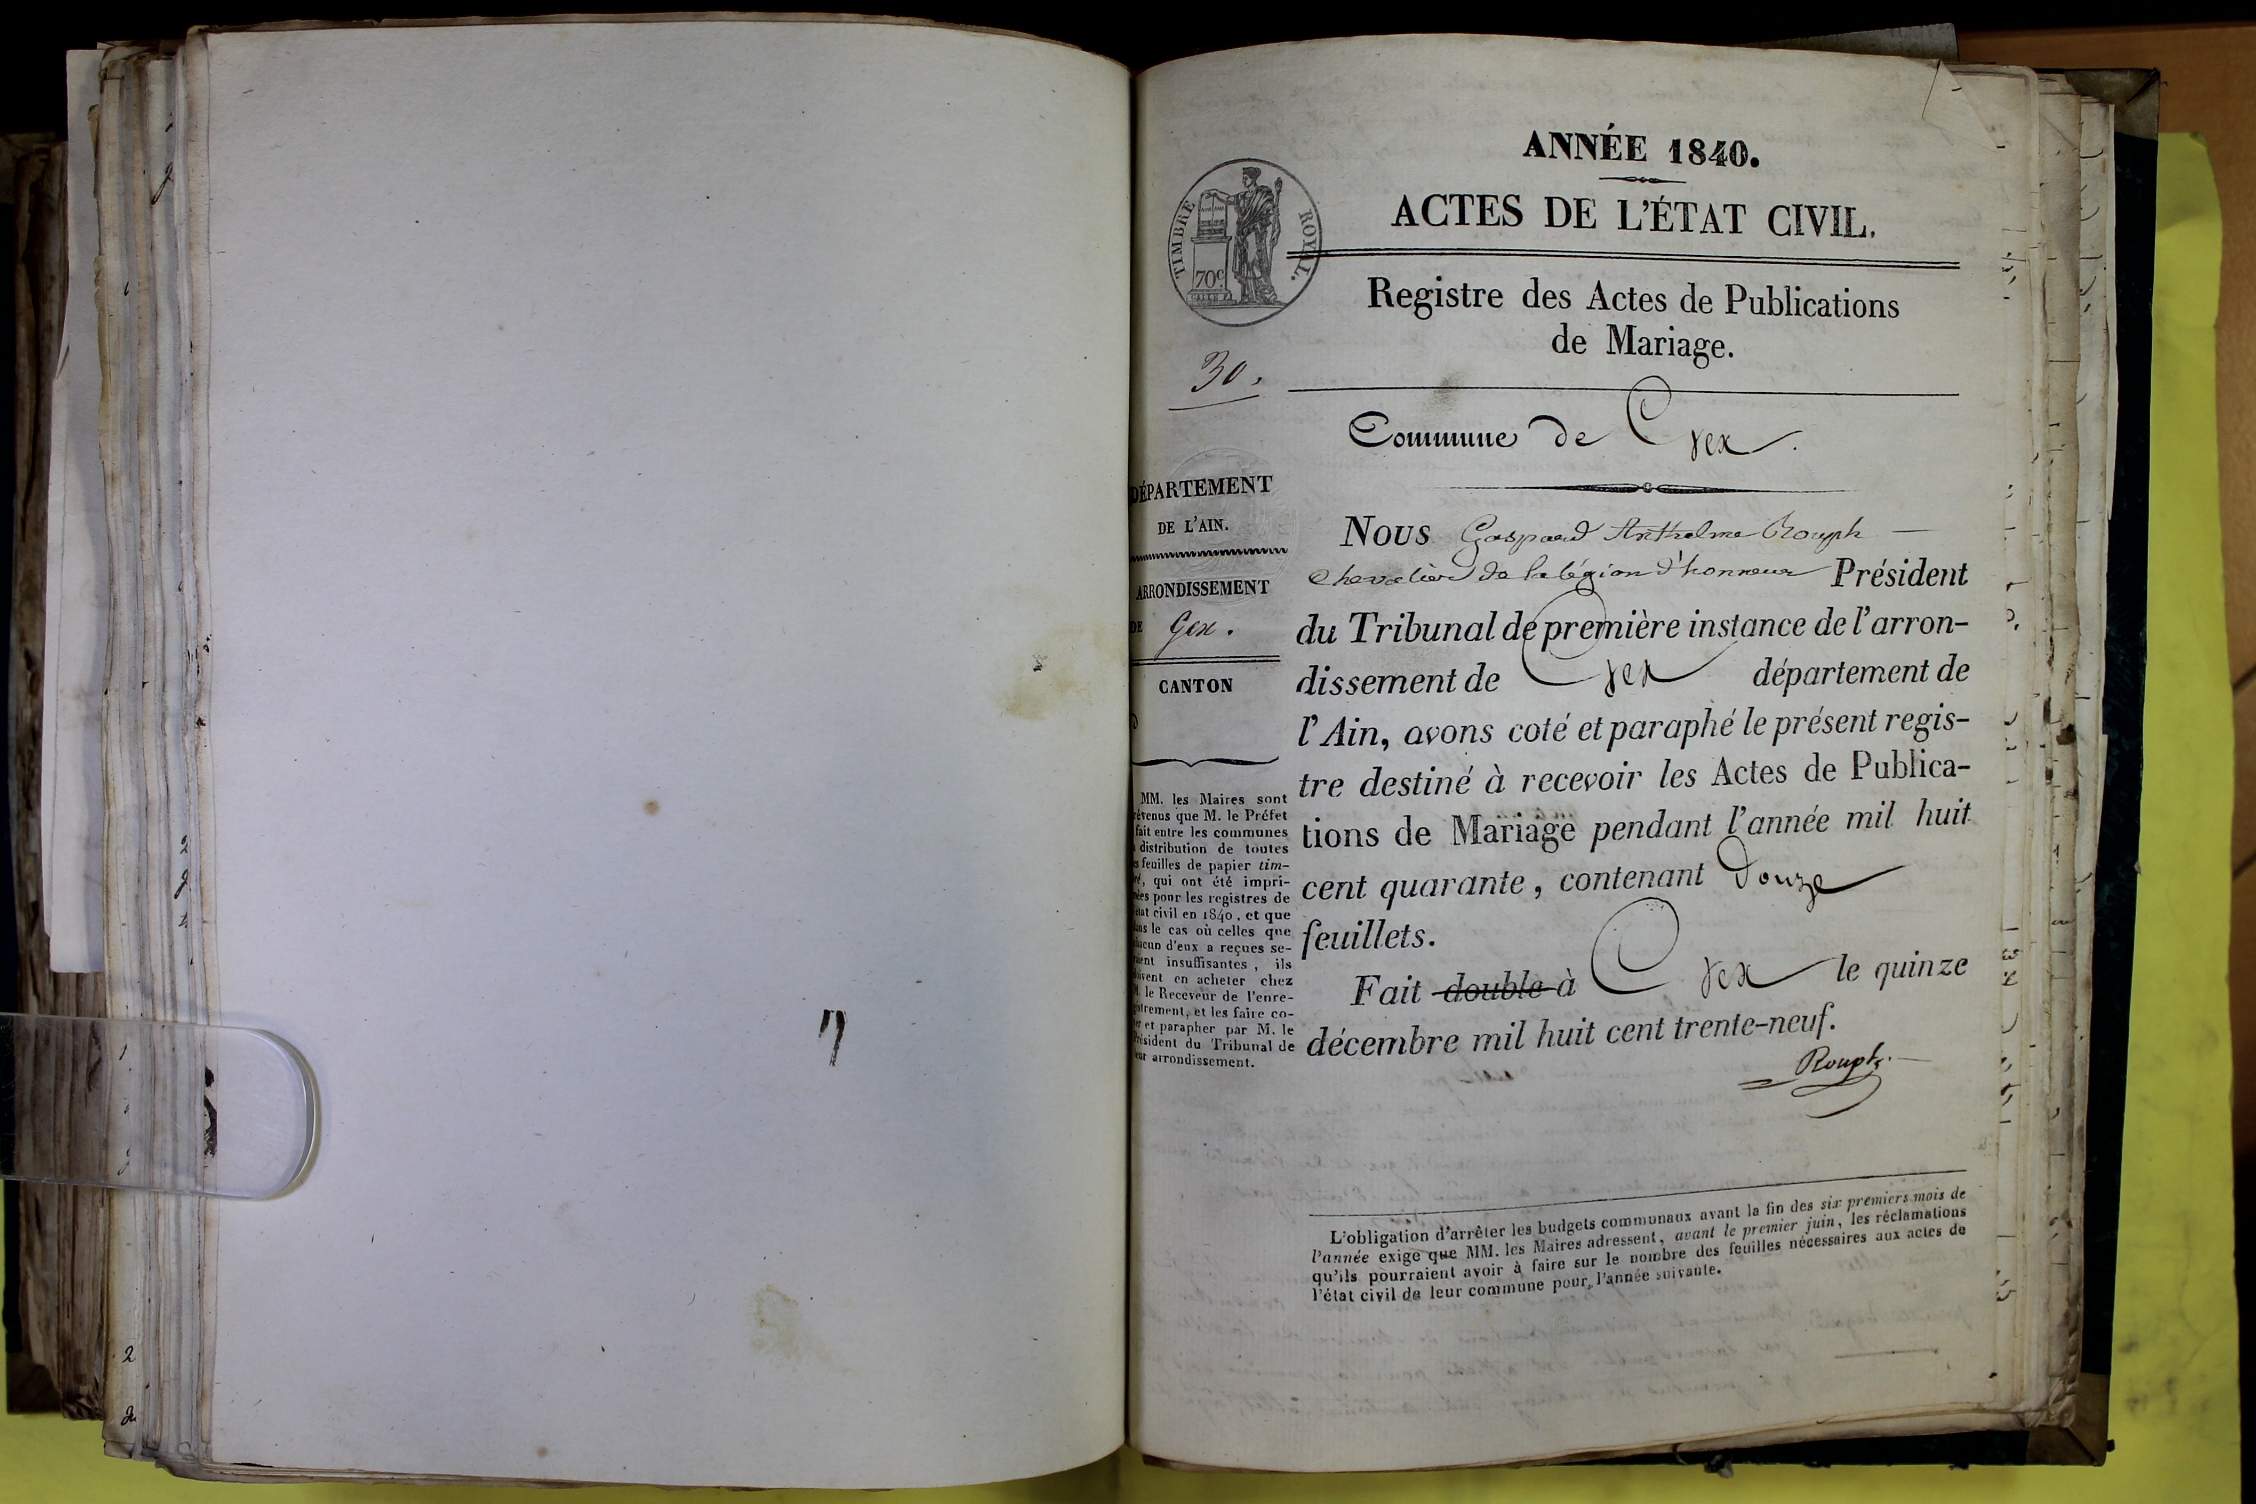 ANNÉE 1840.
ACTES DE L'ÉTAT CIVIL.
TIMBRE ROYAL.
70c
Registre des Actes de Publications
de Mariage.
30.
Commune de Gex.
DÉPARTEMENT
DE L'AIN.
ARRONDISSEMENT
DE Gex.
CANTON
MM. les Maires sont
révenus que M. le Préfet
fait entre les communes
distribution de toutes
es feuilles de papier tim-
ré, qui ont été impri-
mées pour les registres de
état civil en 1840, et que
ans le cas où celles que
hacun d'eux a reçues se-
raient insuffisantes, ils
doivent en acheter chez
M. le Receveur de l'enre-
gistrement, et les faire co-
ter et parapher par M. le
Président du Tribunal de
leur arrondissement.
Nous Gaspard Anthelme Rouph
Chevalier de la légion d'honneur Président
du Tribunal de première instance de l'arron-
dissement de Gex département de
l'Ain, avons coté et paraphé le présent regis-
tre destiné à recevoir les Actes de Publica-
tions de Mariage pendant l'année mil huit
cent quarante, contenant Douze
feuillets.
Fait double à Gex le quinze
décembre mil huit cent trente-neuf.
Rouph.
L'obligation d'arrêter les budgets communaux avant la fin des six premiers mois de
l'année exige que MM. les Maires adressent, avant le premier juin, les réclamations
qu'ils pourraient avoir à faire sur le nombre des feuilles nécessaires aux actes de
l'état civil de leur commune pour l'année suivante.